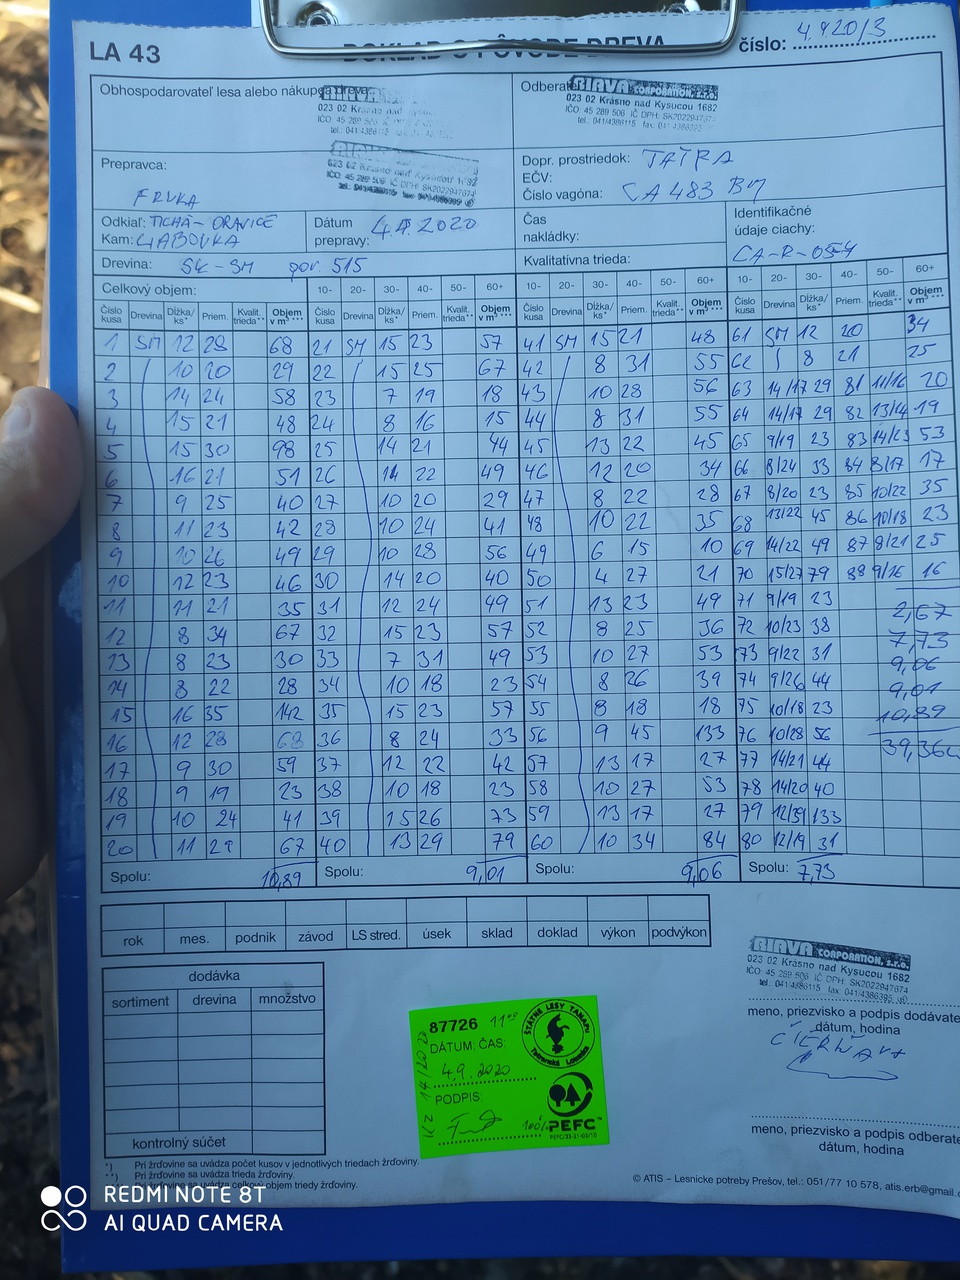 LA 43
DOKLAD O PÔVODE DREVA
číslo: 4.9.20/3
Obhospodarovateľ lesa alebo nákupca dreva:
023 02 Krásno nad Kysucou 1682
Odberateľ
BIAVA CORPORATION, s.r.o.
023 02 Krásno nad Kysucou 1682
IČO: 45 289 506 IČ DPH: SK2022947674
tel.: 041/4386115 fax: 041/4386395
Prepravca:
FRVKA
BIAVA
023 02 Krásno nad Kysucou 1682
IČO: 45 289 506 IČ DPH: SK2022947674
Dopr. prostriedok: TATRA
EČV:
Číslo vagóna: CA 483 BM
Odkiaľ: TICHÁ-ORAVICE
Kam: HABOVKA
Dátum
prepravy: 4.9.2020
Čas
nakládky:
Identifikačné
údaje ciachy:
CA-R-054
Drevina: SK-SM por. 515
Kvalitatívna trieda:
Celkový objem: 10- 20- 30- 40- 50- 60+ 10- 20- 30- 40- 50- 60+ 10- 20- 30- 40- 50- 60+
Číslo kusa Drevina Dĺžka/ ks* Priem. Kvalit. trieda** Objem v m³ *** Číslo kusa Drevina Dĺžka/ ks* Priem. Kvalit. trieda** Objem v m³ *** Číslo kusa Drevina Dĺžka/ ks* Priem. Kvalit. trieda** Objem v m³ *** Číslo kusa Drevina Dĺžka/ ks* Priem. Kvalit. trieda** Objem v m³ ***
1 SM 12 28 68 21 SM 15 23 57 41 SM 15 21 48 61 SM 12 20 34
2 10 20 29 22 15 25 67 42 8 31 55 62 8 21 25
3 14 24 58 23 7 19 18 43 10 28 56 63 14/17 29 81 11/16 20
4 15 21 48 24 8 16 15 44 8 31 55 64 14/17 29 82 13/14 19
5 15 30 98 25 14 21 44 45 13 22 45 65 9/19 23 83 14/23 53
6 16 21 51 26 14 22 49 46 12 20 34 66 8/24 33 84 8/17 17
7 9 25 40 27 10 20 29 47 8 22 28 67 8/20 23 85 10/22 35
8 11 23 42 28 10 24 41 48 10 22 35 68 13/22 45 86 10/18 23
9 10 26 49 29 10 28 56 49 6 15 10 69 14/22 49 87 8/21 25
10 12 23 46 30 14 20 40 50 4 27 21 70 15/27 79 88 9/16 16
11 11 21 35 31 12 24 49 51 13 23 49 71 9/19 23 2,67
12 8 34 67 32 15 23 57 52 8 25 36 72 10/23 38 7,73
13 8 23 30 33 7 31 49 53 10 27 53 73 9/22 31 9,06
14 8 22 28 34 10 18 23 54 8 26 39 74 9/26 44 9,01
15 16 35 142 35 15 23 57 55 8 18 18 75 10/18 23 10,89
16 12 28 68 36 8 24 33 56 9 45 133 76 10/28 56 39,36
17 9 30 59 37 12 22 42 57 13 17 27 77 14/21 44
18 9 19 23 38 10 18 23 58 10 27 53 78 14/20 40
19 10 24 41 39 15 26 73 59 13 17 27 79 12/39 133
20 11 29 67 40 13 29 79 60 10 34 84 80 12/19 31
Spolu: 10,89 Spolu: 9,01 Spolu: 9,06 Spolu: 7,73
rok mes. podnik závod LS stred. úsek sklad doklad výkon podvýkon
dodávka
sortiment drevina množstvo
kontrolný súčet
87726 11⁰⁰
DÁTUM: ČAS:
4.9.2020
PODPIS:
KZ 14/2020
ŠTÁTNE LESY TANAPU
Tatranská Lomnica
100% PEFC™
PEFC/23-21-03/10
BIAVA CORPORATION, s.r.o.
023 02 Krásno nad Kysucou 1682
IČO: 45 289 506 IČ DPH: SK2022947674
tel.: 041/4386115 fax: 041/4386395
meno, priezvisko a podpis dodávate
dátum, hodina
meno, priezvisko a podpis odberate
dátum, hodina
*) Pri žrďovine sa uvádza počet kusov v jednotlivých triedach žrďoviny.
**) Pri žrďovine sa uvádza trieda žrďoviny.
Pri žrďovine sa uvádza celkový objem triedy žrďoviny.
© ATIS – Lesnícke potreby Prešov, tel.: 051/77 10 578, atis.erb@gmail.c
REDMI NOTE 8T
AI QUAD CAMERA